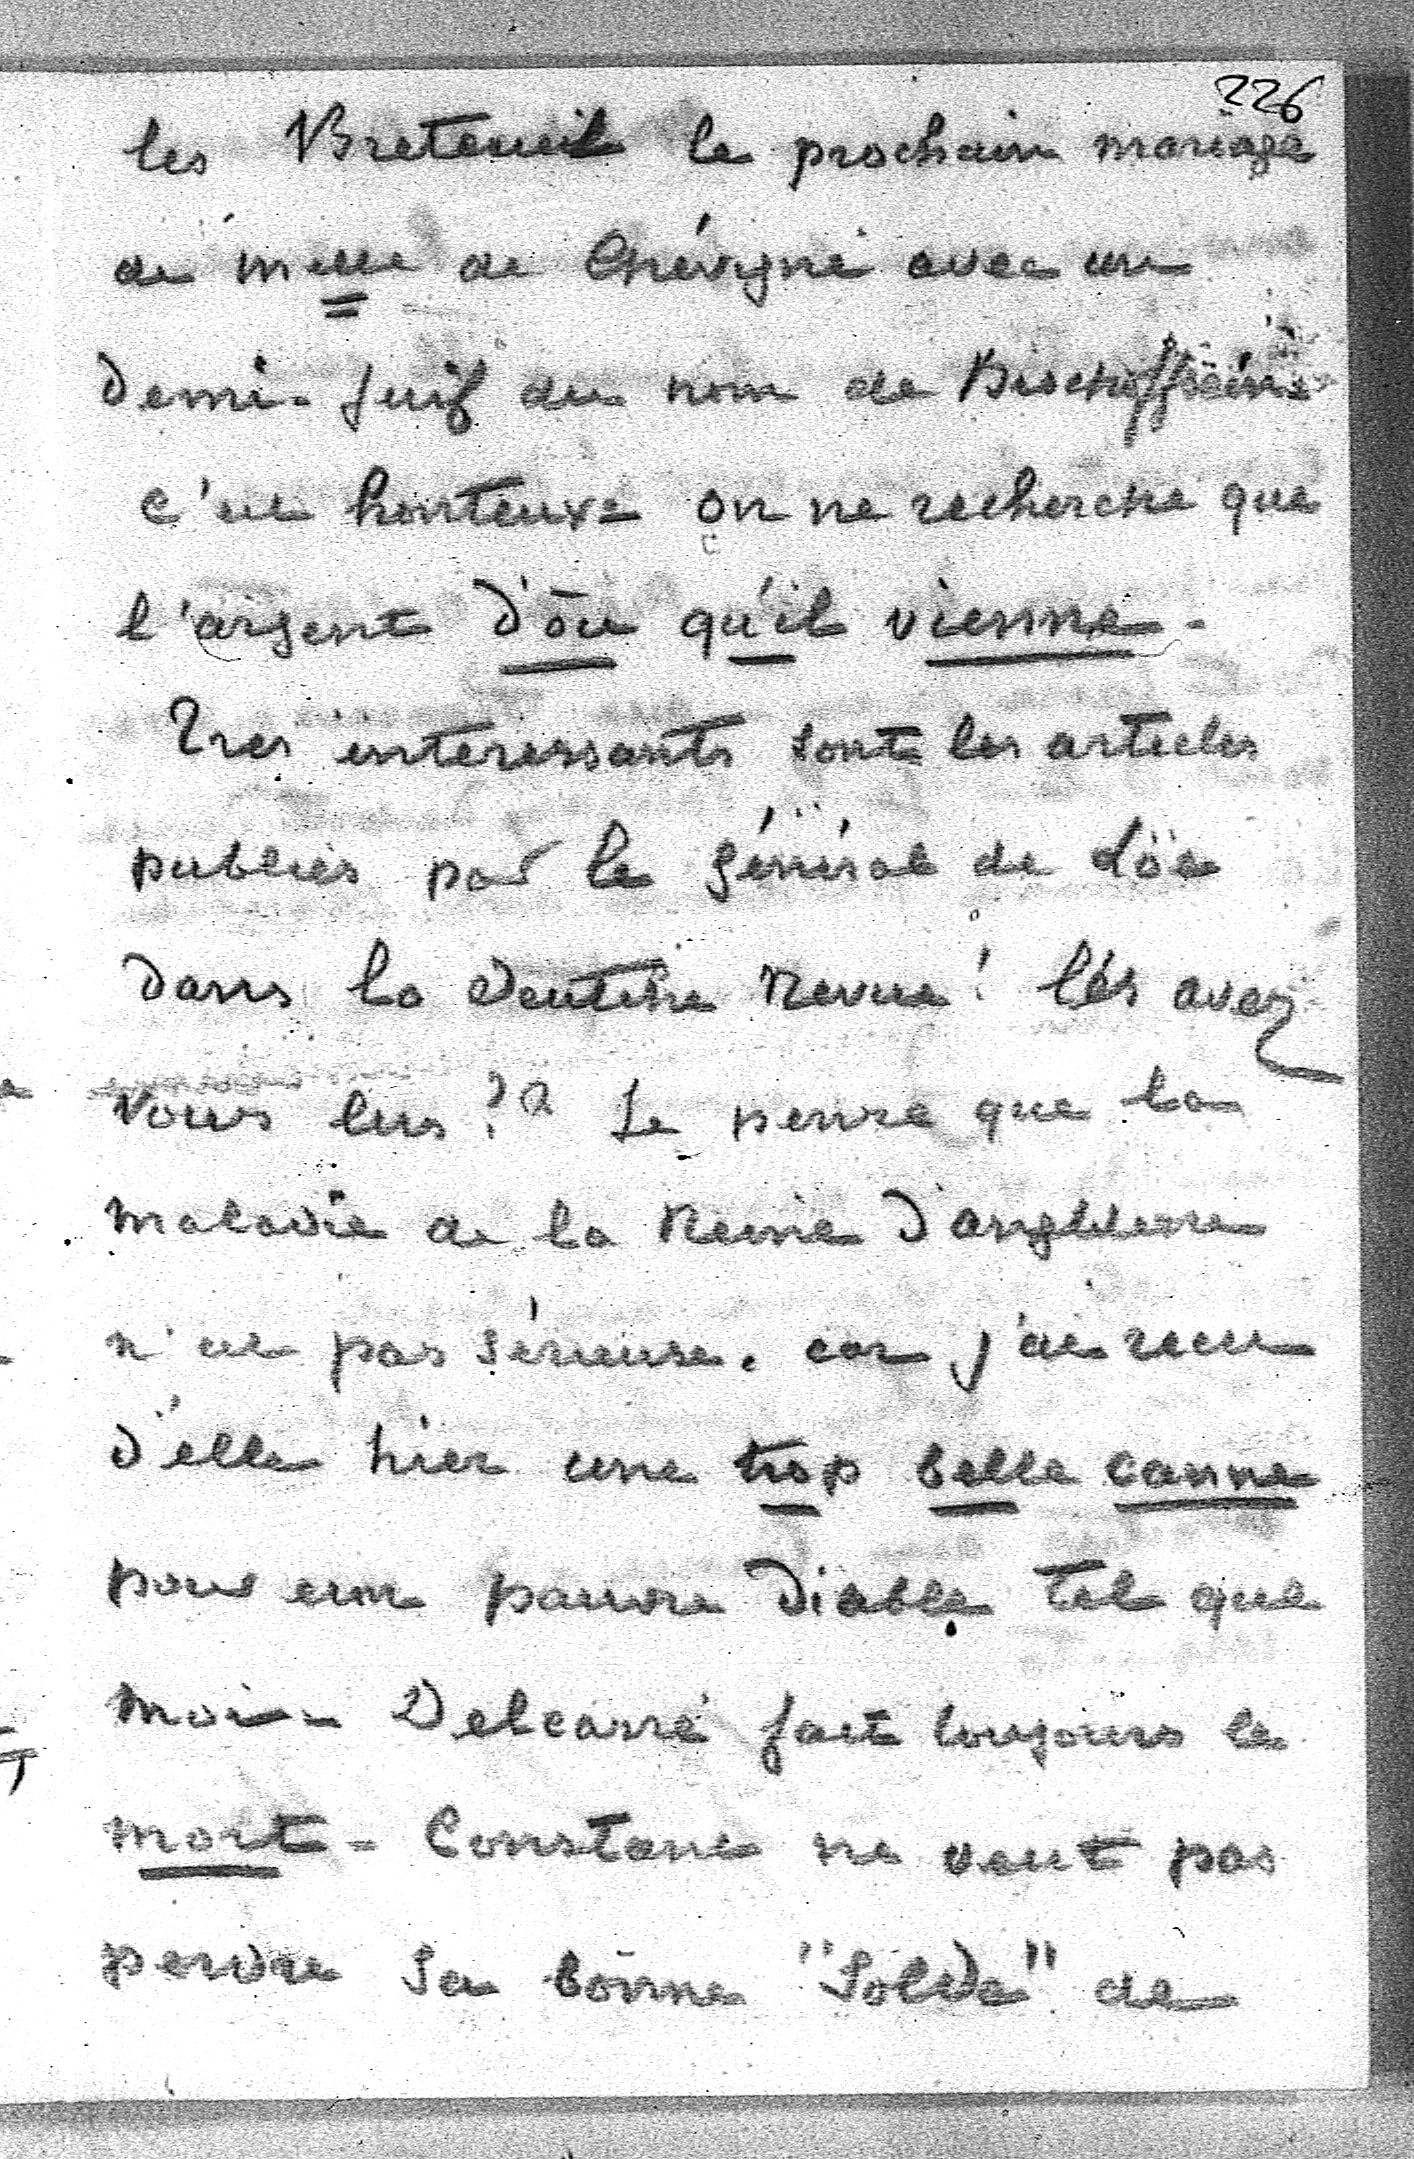 226
les Breteuil le prochain mariage
de Melle de Chévigné avec un
demi-Juif du nom de Bischoffsheim
c'est honteux = on ne recherche que
l'argent d'où qu'il vienne -
Tres interessants sont les articles
publiés par le Général de Löe
dans la Deutsche Revue! les avez
vous lus?? Je pense que la
maladie de la Reine d'angleterre
n'est pas sérieuse. car j'ai recu
d'elle hier une trop belle canne
pour un pauvre diable tel que
moi - Delcassé fait toujours le
mort - Constans ne veut pas
perdre sa bonne "Solde" de